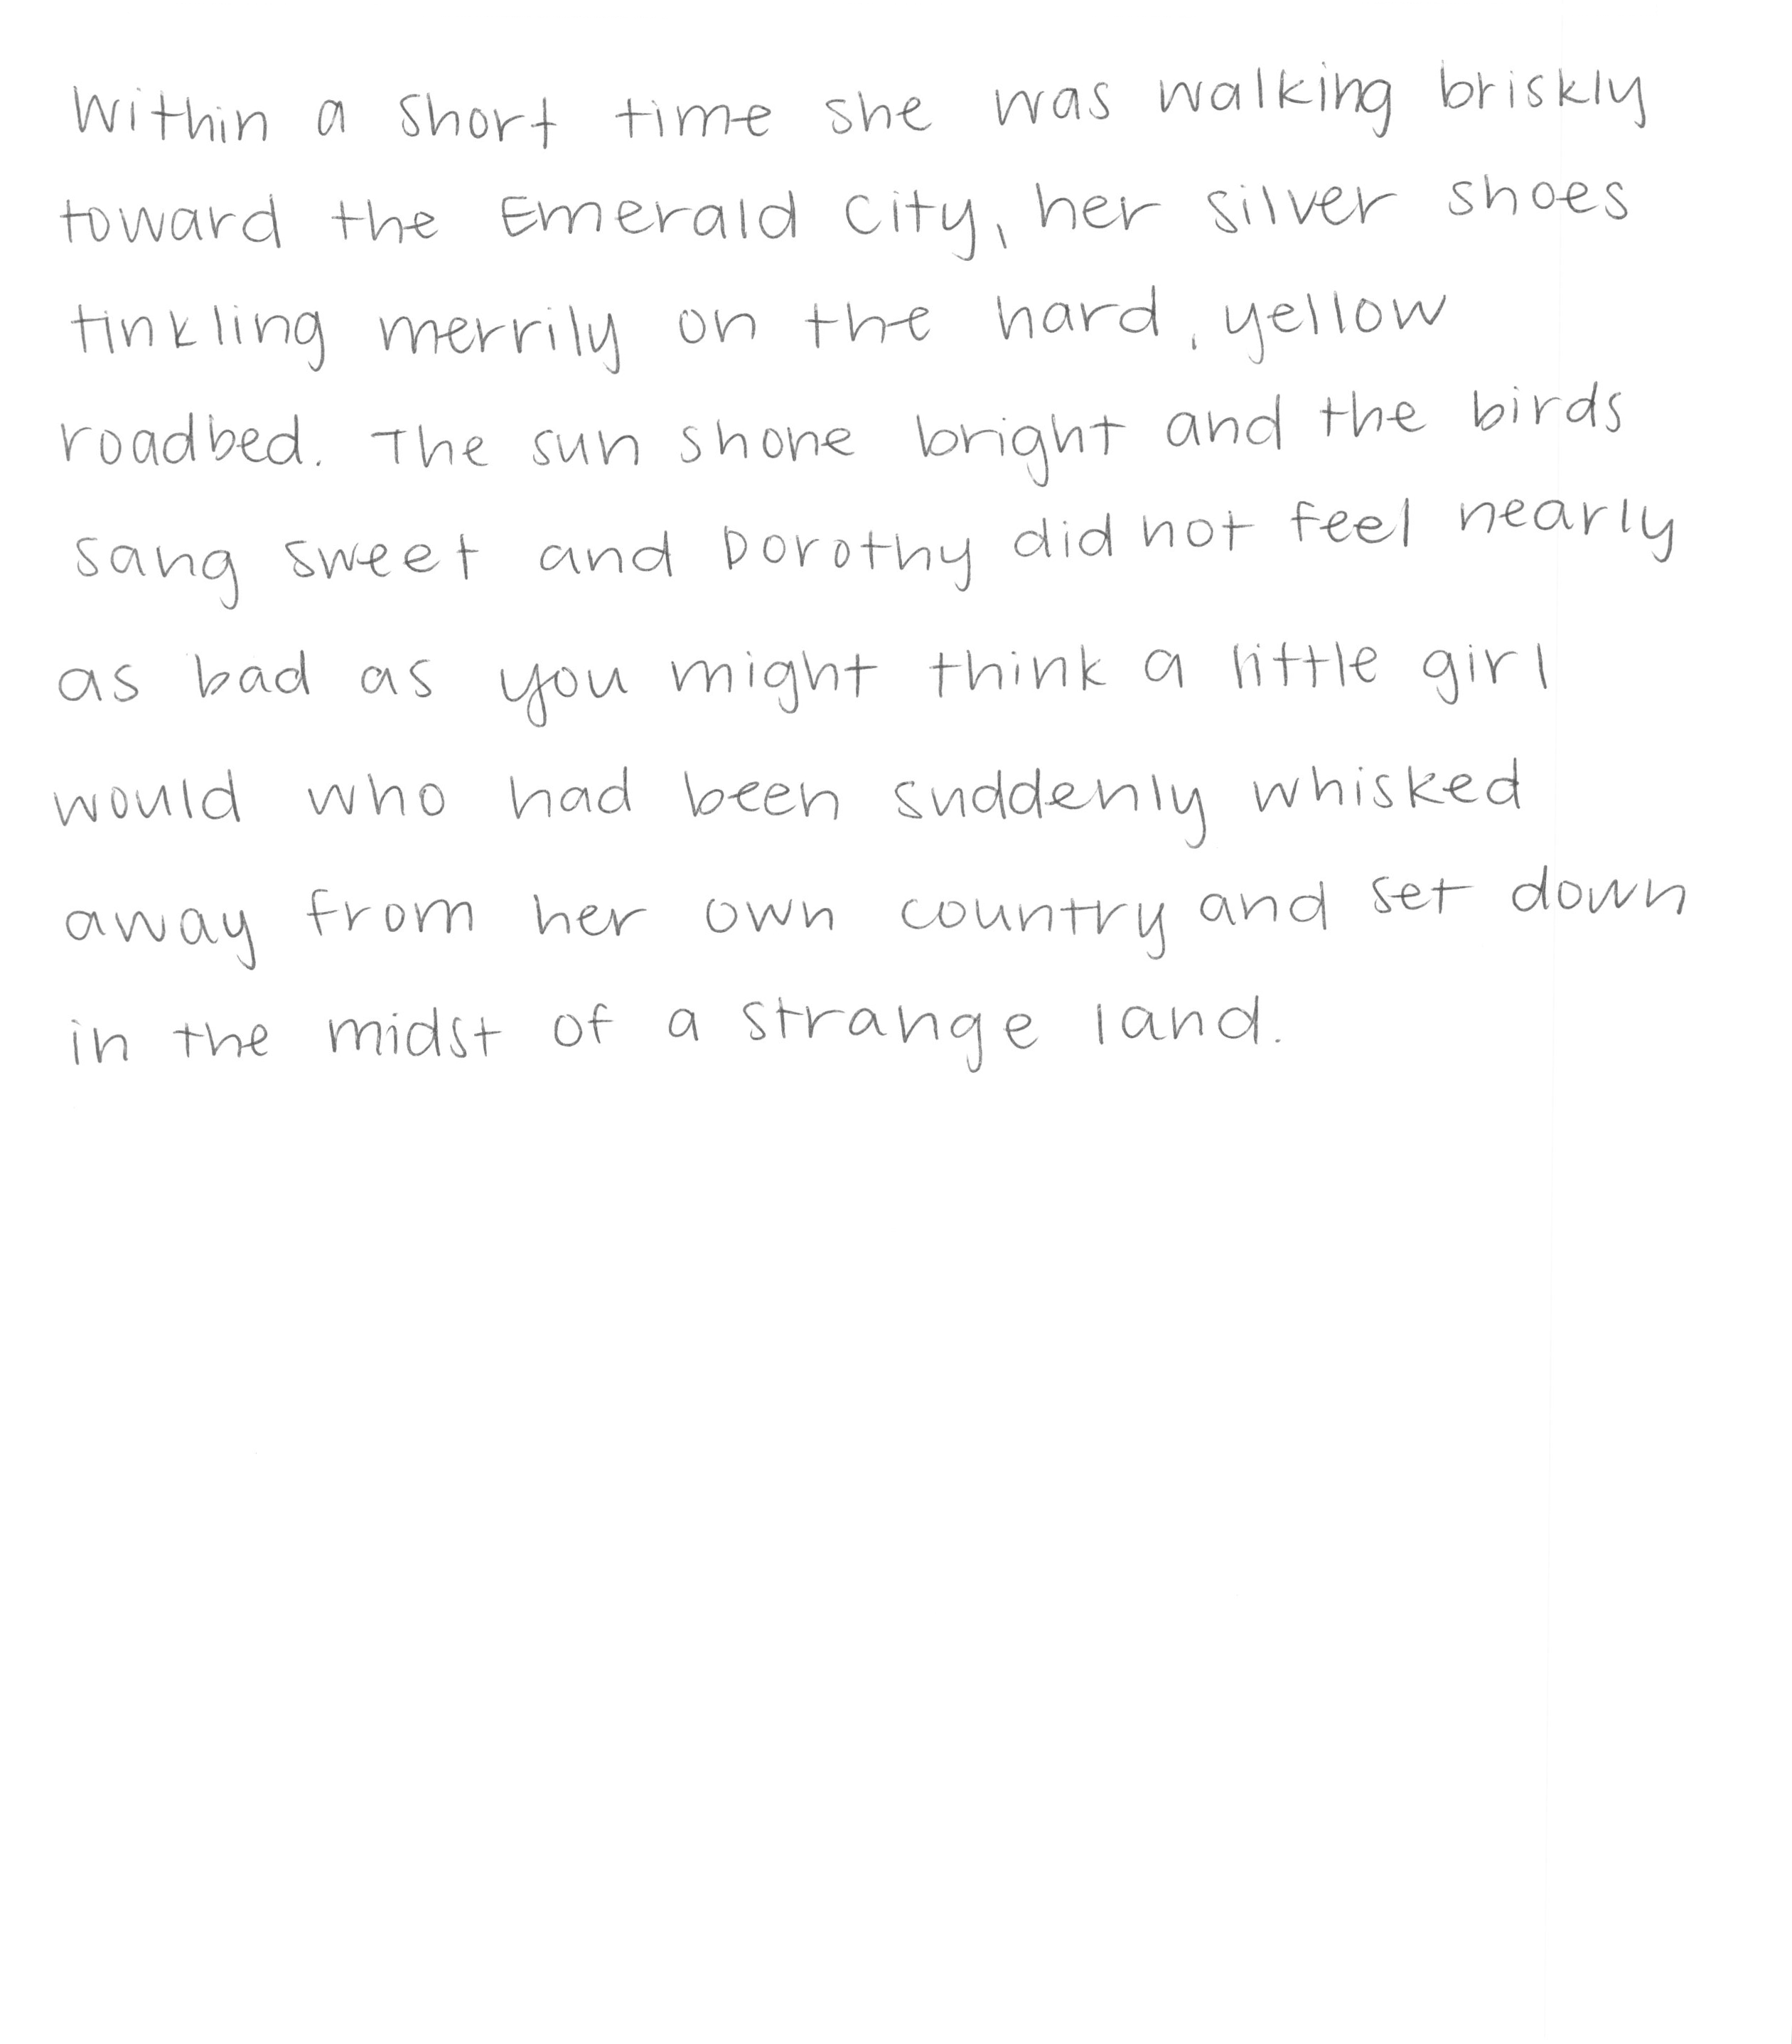 Within a short time she was walking briskly
toward the Emerald City, her silver shoes
tinkling merrily on the hard, yellow
roadbed. The sun shone bright and the birds
sang sweet and Dorothy did not feel nearly
as bad as you might think a little girl
would who had been suddenly whisked
away from her own country and set down
in the midst of a strange land.